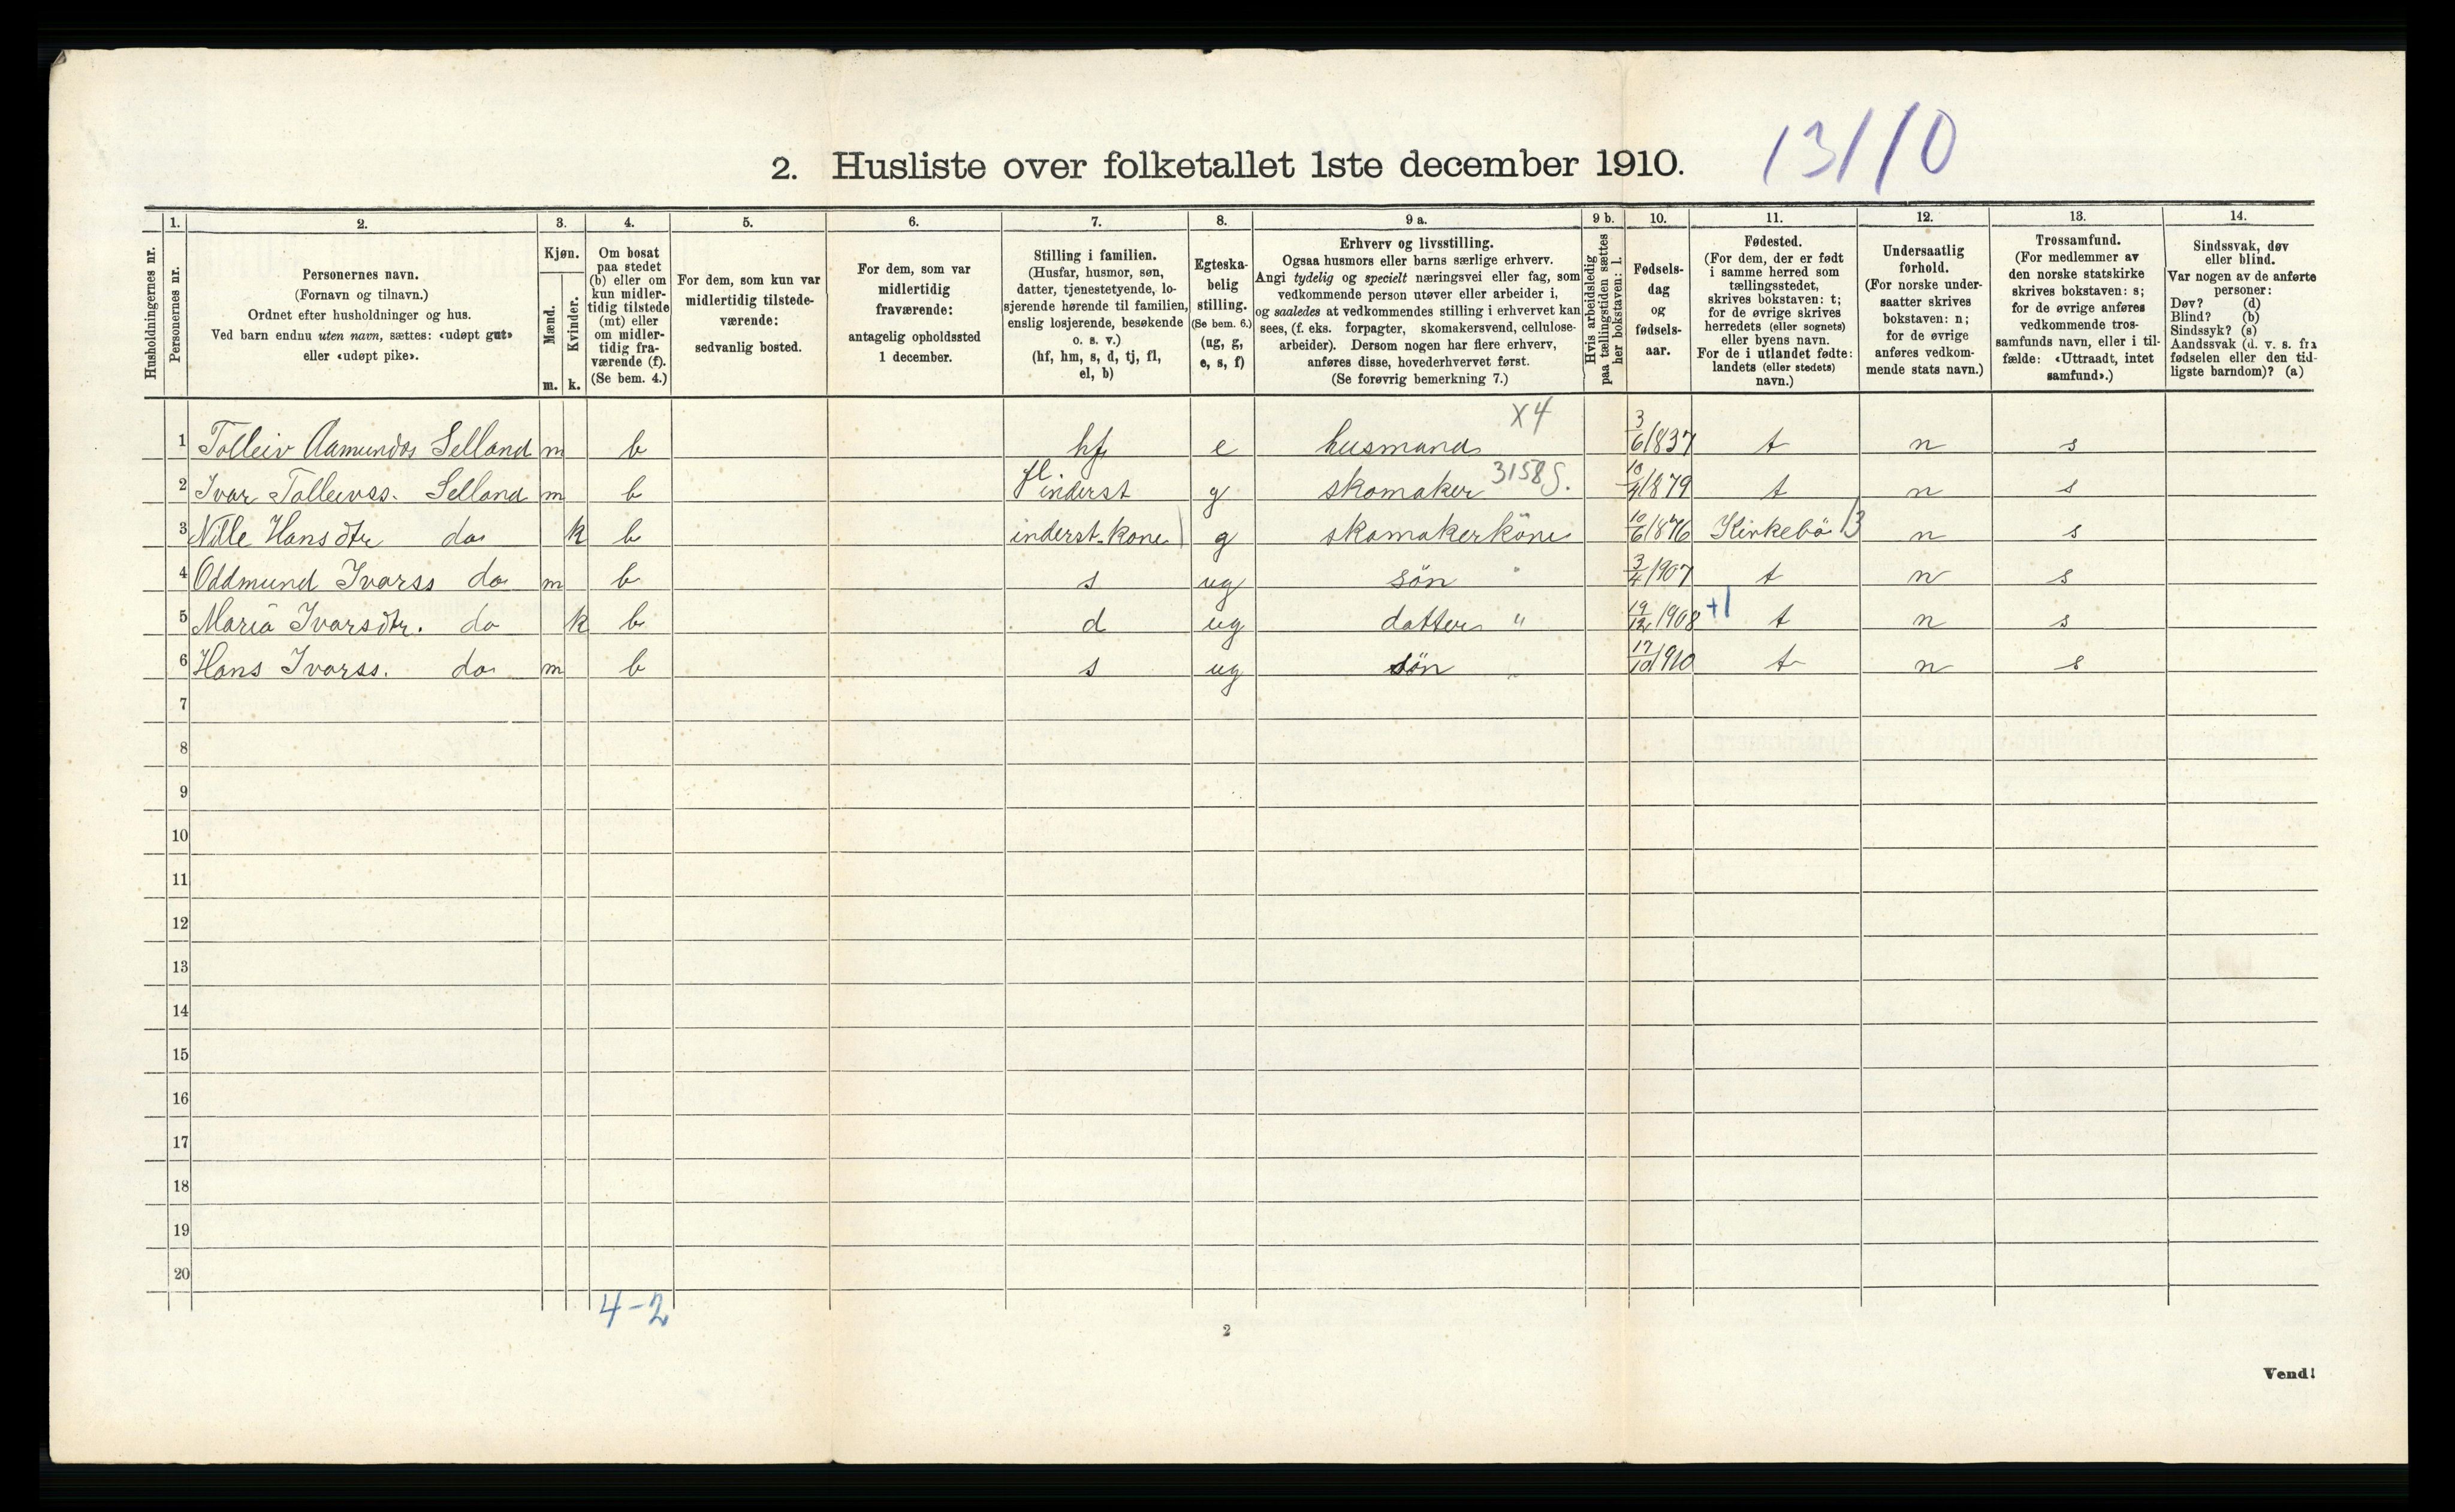 2. Husliste over folketallet 1ste december 1910.
13/10
Husholdningernes nr.
1.
Personernes nr.
2.
Personernes navn.
(Fornavn og tilnavn.)
Ordnet efter husholdninger og hus.
Ved barn endnu uten navn, sættes: «udøpt gut»
eller «udøpt pike».
3.
Kjøn.
Mænd.
m.
Kvinder.
k.
4.
Om bosat
paa stedet
(b) eller om
kun midler-
tidig tilstede
(mt) eller
om midler-
tidig fra-
værende (f).
(Se bem. 4.)
5.
For dem, som kun var
midlertidig tilstede-
værende:
sedvanlig bosted.
6.
For dem, som var
midlertidig
fraværende:
antagelig opholdssted
1 december.
7.
Stilling i familien.
(Husfar, husmor, søn,
datter, tjenestetyende, lo-
sjerende hørende til familien,
enslig losjerende, besøkende
o. s. v.)
(hf, hm, s, d, tj, fl,
el, b)
8.
Egteska-
belig
stilling.
(Se bem. 6.)
(ug, g,
e, s, f)
9 a.
Erhverv og livsstilling.
Ogsaa husmors eller barns særlige erhverv.
Angi tydelig og specielt næringsvei eller fag, som
vedkommende person utøver eller arbeider i,
og saaledes at vedkommendes stilling i erhvervet kan
sees, (f. eks. forpagter, skomakersvend, cellulose-
arbeider). Dersom nogen har flere erhverv,
anføres disse, hovederhvervet først.
(Se forøvrig bemerkning 7.)
9 b.
Hvis arbeidsledig
paa tællingstiden sættes
her bokstaven: l.
10.
Fødsels-
dag
og
fødsels-
aar.
11.
Fødested.
(For dem, der er født
i samme herred som
tællingsstedet,
skrives bokstaven: t;
for de øvrige skrives
herredets (eller sognets)
eller byens navn.
For de i utlandet fødte:
landets (eller stedets)
navn.)
12.
Undersaatlig
forhold.
(For norske under-
saatter skrives
bokstaven: n;
for de øvrige
anføres vedkom-
mende stats navn.)
13.
Trossamfund.
(For medlemmer av
den norske statskirke
skrives bokstaven: s;
for de øvrige anføres
vedkommende tros-
samfunds navn, eller i til-
fælde: «Uttraadt, intet
samfund».)
14.
Sindssvak, døv
eller blind.
Var nogen av de anførte
personer:
Døv? (d)
Blind? (b)
Sindssyk? (s)
Aandssvak (d. v. s. fra
fødselen eller den tid-
ligste barndom)? (a)
X4
1 Tolleiv Aamundss Selland m b hf e husmand 3/6 1837 t n s
2 Ivar Tolleivss. Selland m b fl inderst g skomaker 3158 S. 10/4 1879 t n s
3 Nille Hansdtr do k b inderst-kone g skomakerkone 10/6 1876 Kirkebö 13 n s
4 Oddmund Ivarss do m b s ug sön " 3/4 1907 t n s
5 Maria Ivarsdtr. do k b d ug datter " 19/12 1908 +1 t n s
6 Hans Ivarss. do m b s ug sön " 17/10 1910 t n s
7
8
9
10
11
12
13
14
15
16
17
18
19
20
4-2
2
Vend!